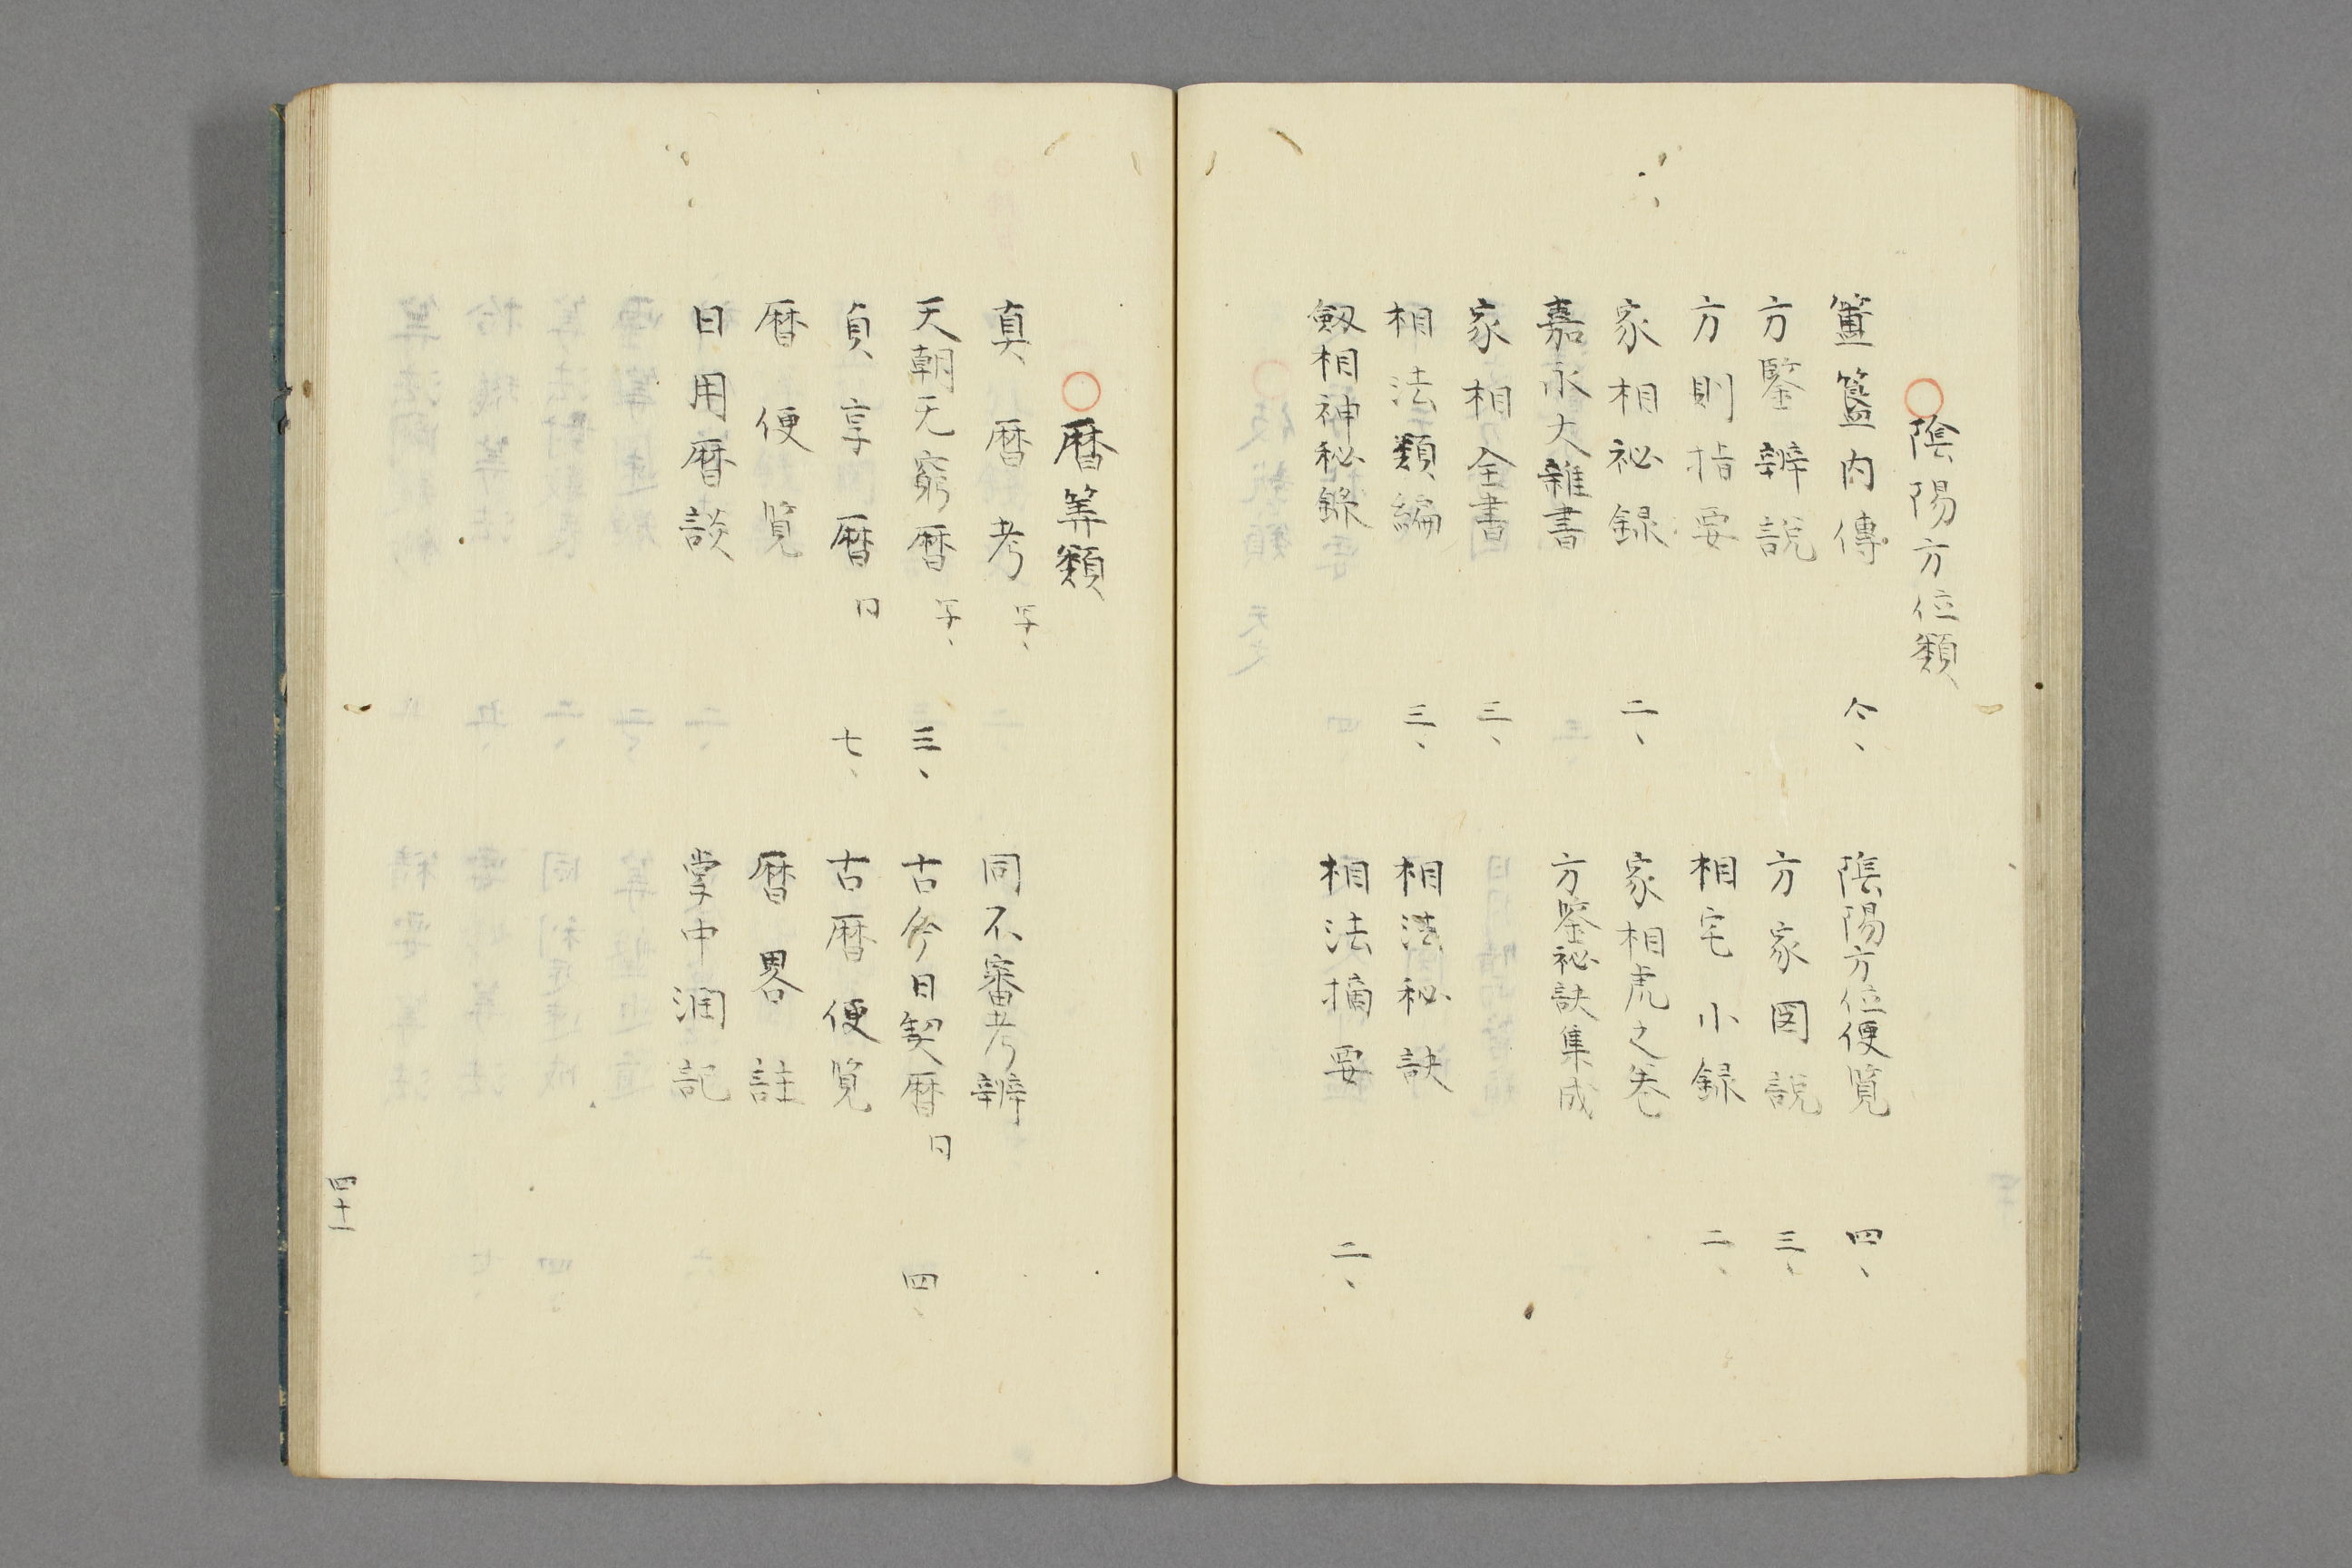 ○陰陽方位類
簠簋内傳 仝、
陰陽方位便覧 四、
方鑒辨説
方家図説 三、
方則指要
相宅小録 二、
家相祕録 二、
家相虎之巻
嘉永大雜書
方鑒祕訣集成
家相全書 三、
相法類編 三、
相法秘訣
劔相神秘録
相法摘要 二、
○暦筭類
真暦考 写、
同不審考辨
天朝无窮暦 写、 三、
古今日契暦 同 四、
貞享暦 同 七、
古暦便覧
暦便覧
暦畧註
日用暦談
掌中潤記
四十一